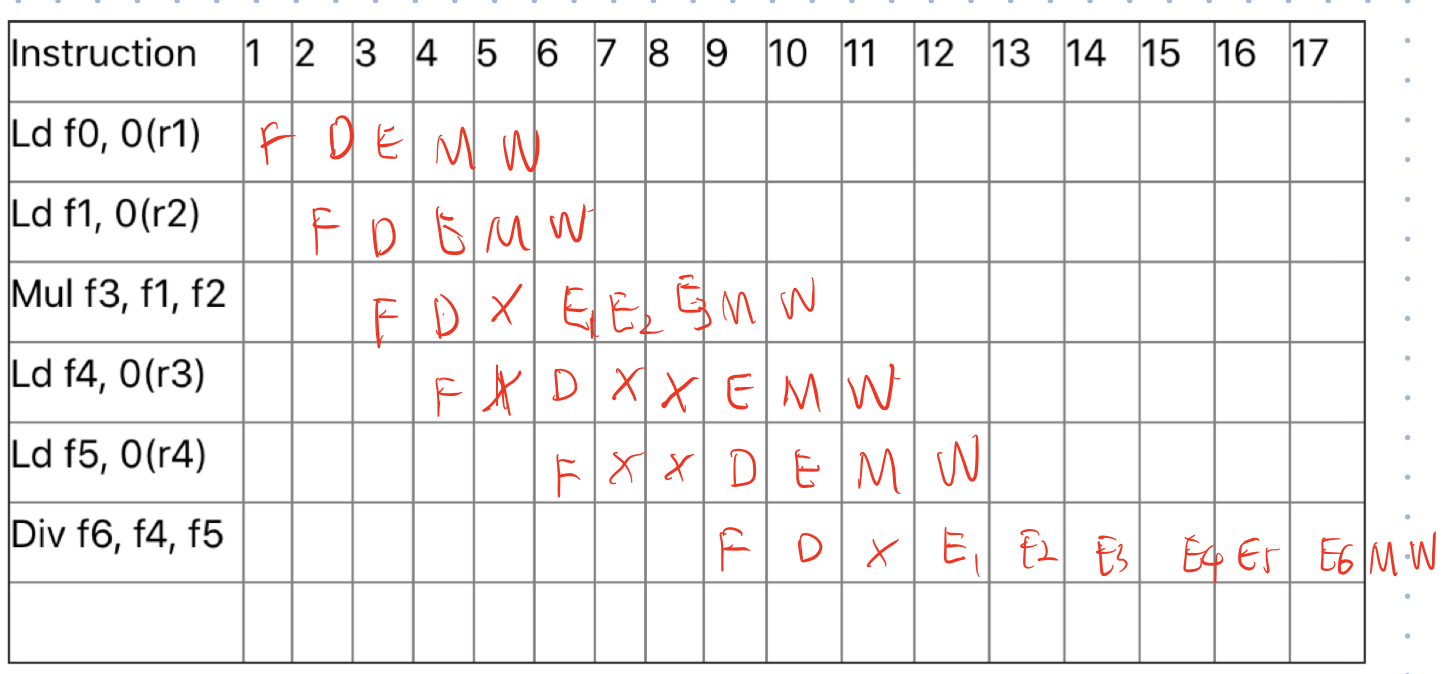 Instruction 1 2 3 4 5 6 7 8 9 10 11 12 13 14 15 16 17
Ld f0, 0(r1) F D E M W
Ld f1, 0(r2) F D E M W
Mul f3, f1, f2 F D X E1 E2 E3 M W
Ld f4, 0(r3) F X D X X E M W
Ld f5, 0(r4) F X X D E M W
Div f6, f4, f5 F D X E1 E2 E3 E4 E5 E6 M W